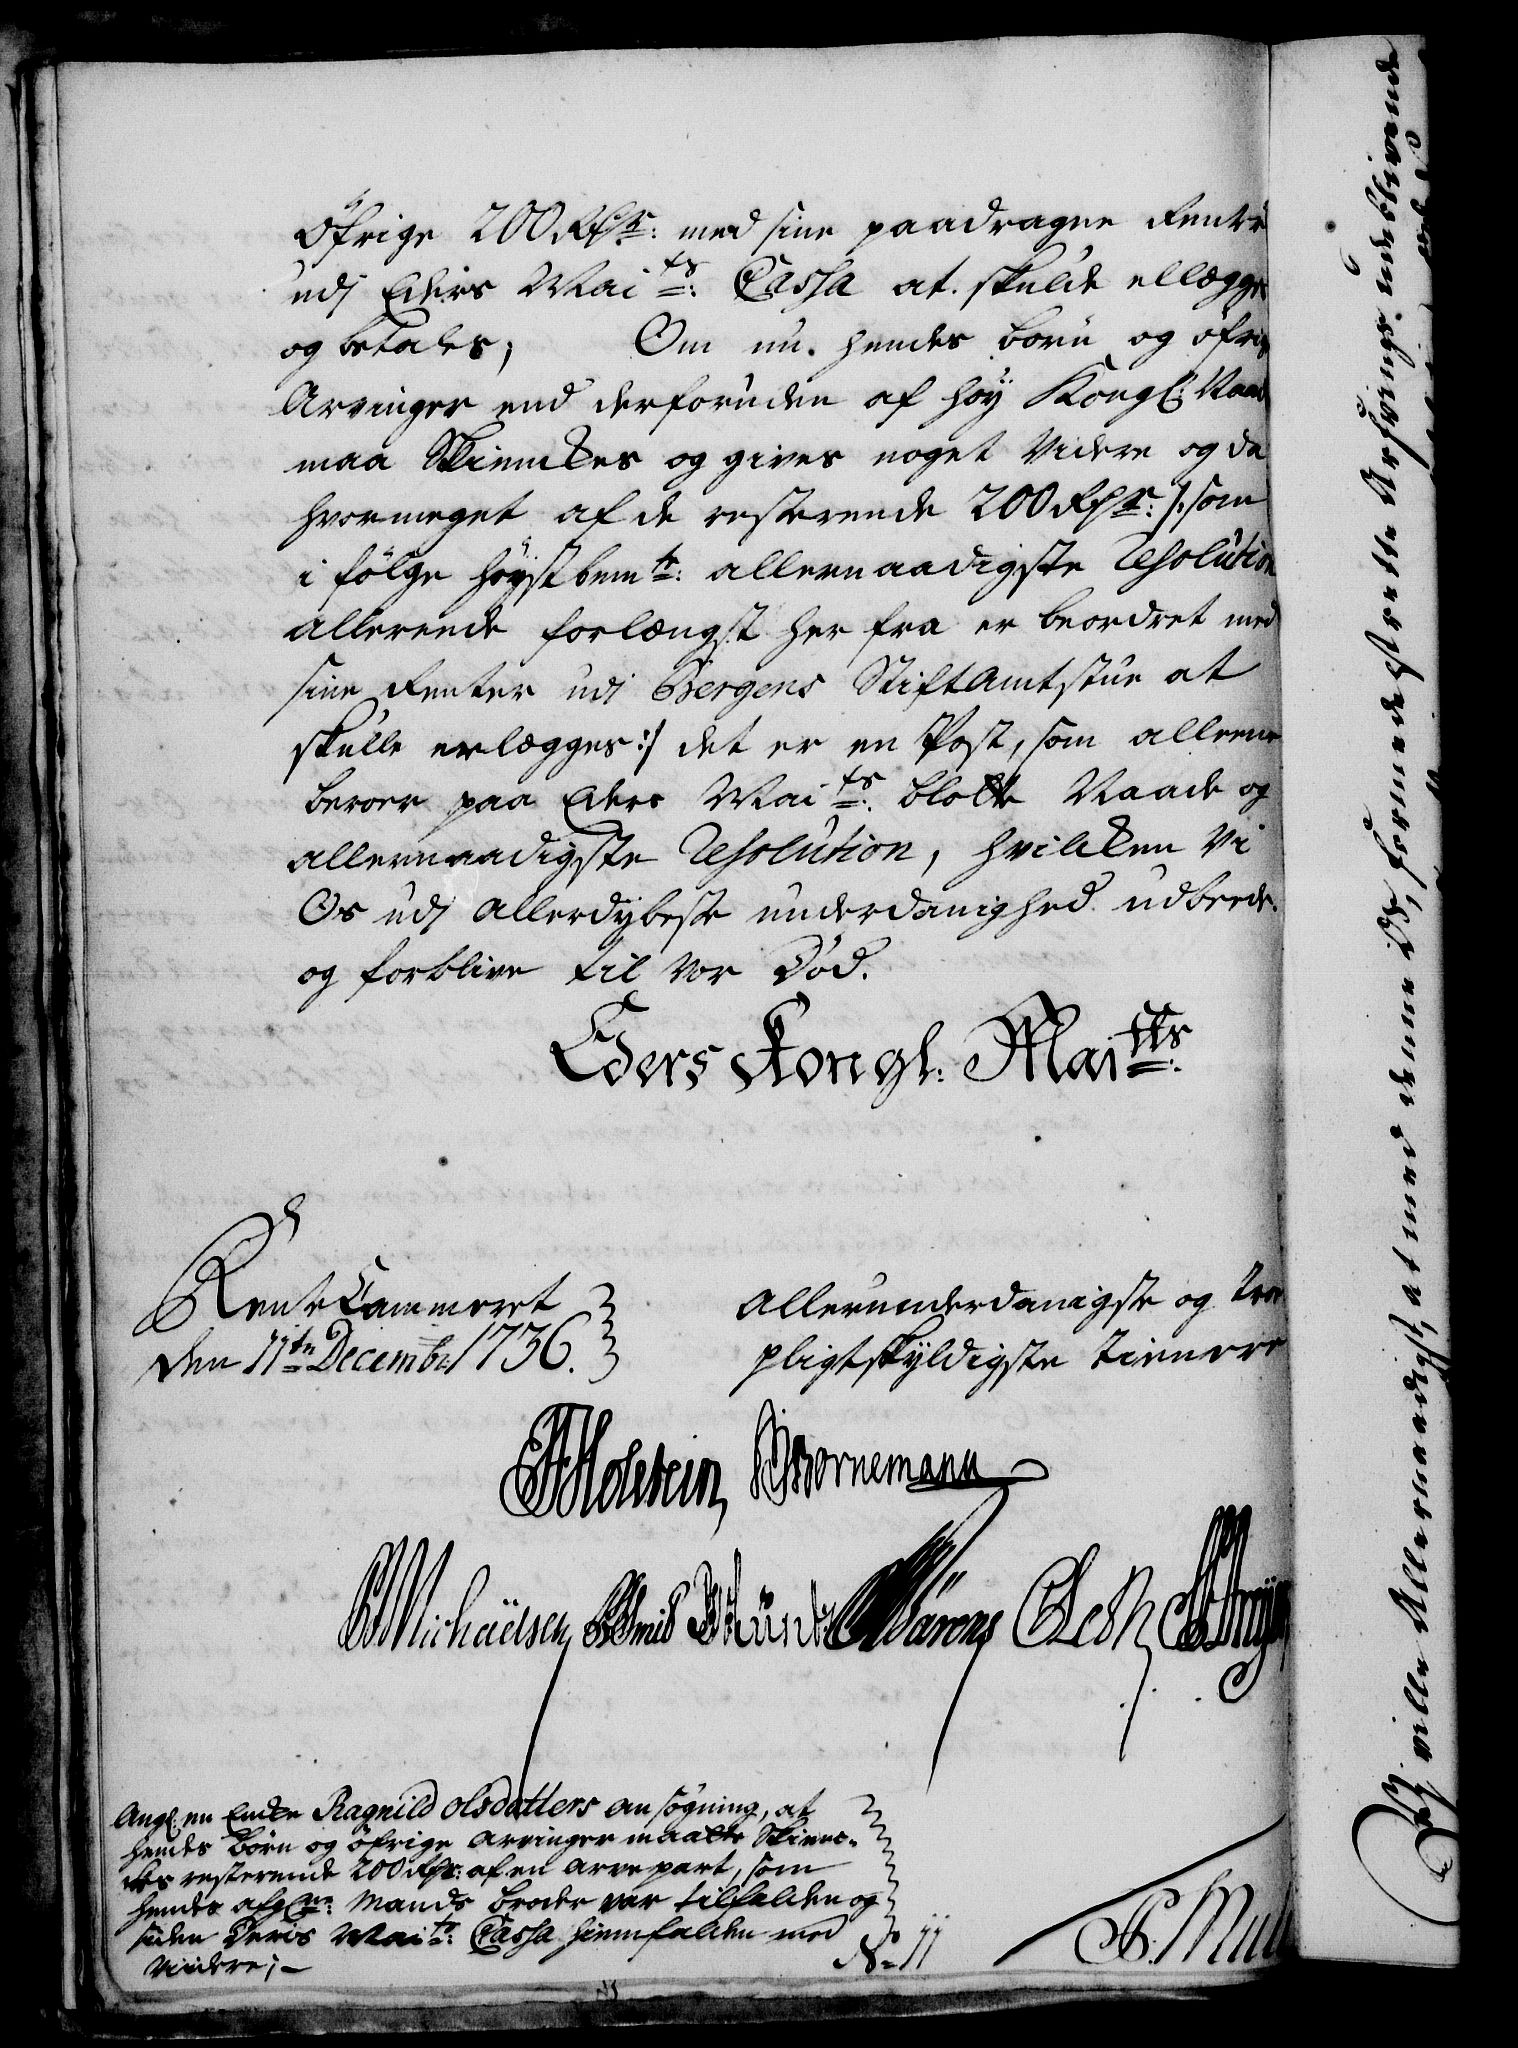 öfrige 200 Rdr: med sine paadragne Rente
udj Eders Mai ts: Cassa at skulde ellægges
og betales, Om nu hendes börn og öfrige
Arvinger end derforuden af höy Kongl: Naade
maa Skienckes og gives noget Videre og da
hvormeget af de resterende 200 Rdr: /: som
i fölge höystbem te: allernaadigste Resolution
allerende forlængst her fra er beordret med
sine Renter udj Bergens StiftAmtstue at
skulle erlægges :/ det er en Post, som alleene
beroer paa Eders Mai ts: blotte Naade og
allernaadigste Resolution, hvilcken Vi
Os udj allerdybeste underdanighed udbeede
og forblive til vor Död.
Eders Kongl: Mai tts:
RenteCammeret
den 11 te Decembr 1736.
allerunderdanigste og troe
pligtskyldigste tienere
Holstein, Bornemann
Michaelsen
Ang: en Encke Ragnild Olsdatters ansögning, at
hendes Börn og öfrige arvinger maatte Skienc-
kes resterende 200 Rdr: af en arvepart, som
hendes afg: ne: Mands broder var tilfalden og
siden Deris Mai ts: Cassa hiemfalden med
Videre;
No 11
Vj ville Allernaadigst, at med denne Post, formedelst rette Arfvings udeblivende